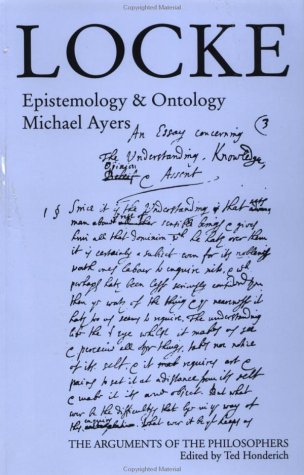 LOCKE
Epistemology & Ontology
Michael Ayers
An Essay concerning (3
The Understanding, Knowledge,
Opinion
Belief & Assent.
1 § Since it is the Understanding that
man above sensible beings & give
him all that dominion he hath over them
it is certainly a subject even for its nobleness
worth our labour to enquire into. &
perhaps hath been lesse seriously considered
then ways of the thing & nearnesse it
hath to us seems to require. The understanding
like the eye while it makes us see
& perceive all other things, takes noe notice
of its self, & it requires art &
pains to set it at a distance from its self &
make it its own object. But what
ever be the difficultys that lye in the way of
this What ever it be that keeps us
THE ARGUMENTS OF THE PHILOSOPHERS
Edited by Ted Honderich